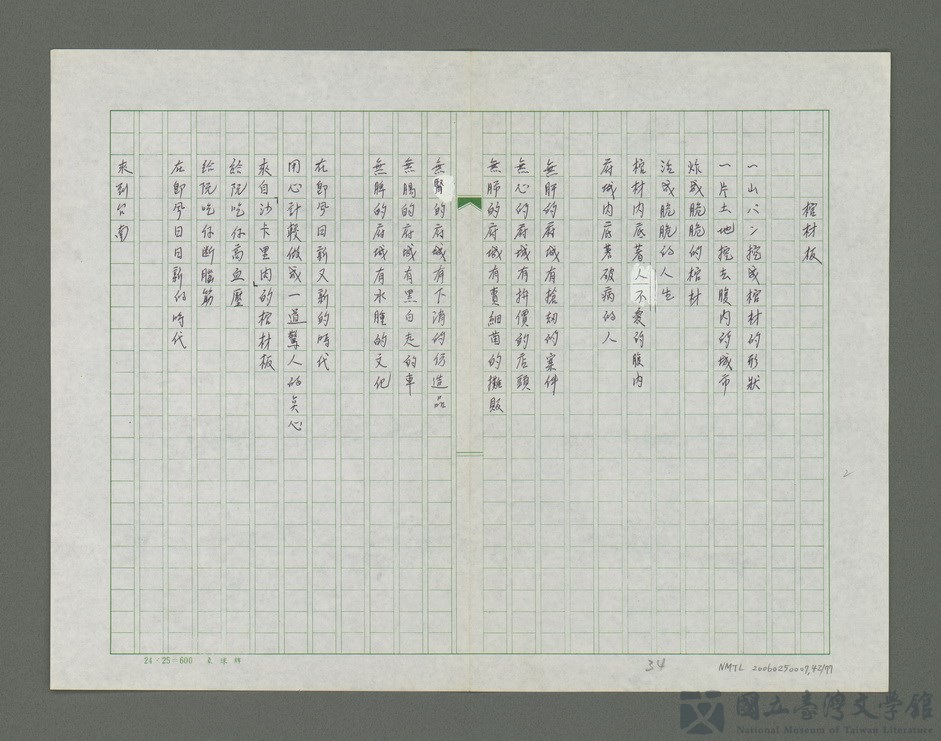 棺材板
一山パン挖成棺材的形狀
一片土地挖去腹內的城市
炸成脆脆的棺材
活成脆脆的人生
棺材內底著人不愛的腹內
府城內底著破病的人
無肝的府城有搶劫的案件
無心的府城有拚價的店頭
無肺的府城有賣細菌的攤販
無腎的府城有下消的仿造品
無腸的府城有黑白走的車
無脾的府城有水腫的文化
在即號日新又新的時代
用心計較做成一道驚人的點心
來自「沙卡里肉」的棺材板
給阮吃仔高血壓
給阮吃仔斷腦筋
在即號日日新的時代
來到台南
24×25=600
34
NMTL 20060250007,42/77
國立臺灣文學館
National Museum of Taiwan Literature